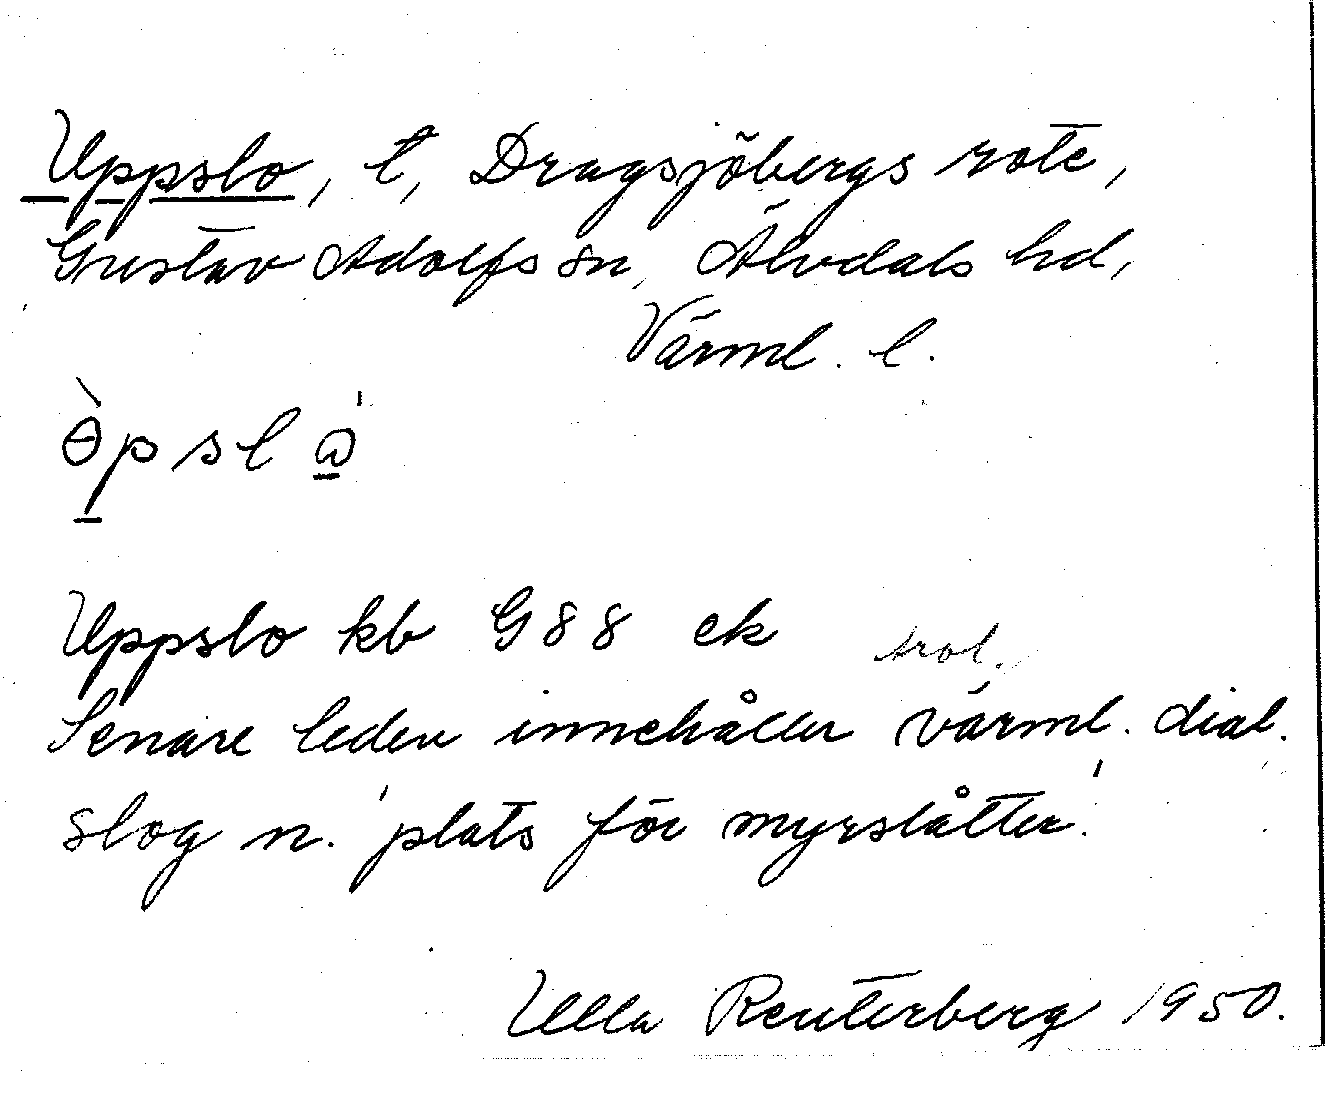 Uppslo, t, Dragsjöbergs rote,
Gustav Adolfs sn, Älvdals hd,
Värml. l.
ɵ̀pslɷ̀
Uppslo kb G88 ek
trol.
Senare leden innehåller värml. dial.
slog n. 'plats för myrslåtter.'
Ulla Reuterberg 1950.